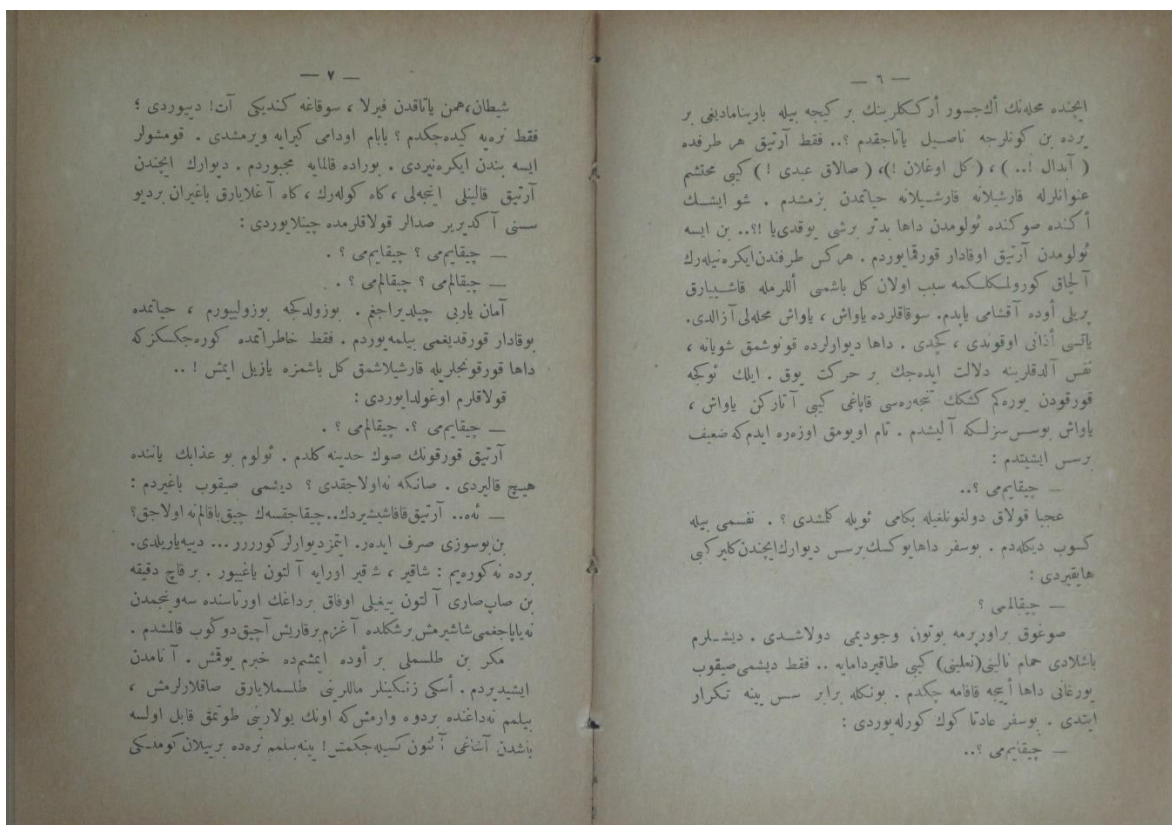 — ٦ —
ایچنده محله‌نك أك جسور أرككلرینك بر كیجه بیله بارینامادیغی بر
یرده بن كونلرجه ناصیل یاتاجقدم ؟.. فقط آرتیق هر طرفده
( آبدال !.. ) ، ( كل اوغلان !)، ( صالاق عبدی ! ) كبی محتشم
عنوانلرله قارشیلانه قارشیلانه حیاتمدن بزمشدم . شو ایشك
أكنده صوكنده ئولومدن داها بدتر برشی یوقدی‌یا !؟.. بن ایسه
ئولومدن آرتیق اوقادار قورقمایوردم . هركس طرفندن ایكره‌نیله‌رك
آلچاق كورولمكلكمه سبب اولان كل باشمی أللرمله قاشییارق
پریلی أوده آقشامی یاپدم. سوقاقلرده یاواش ، یاواش محله‌لی آزالدی.
یاتسی أذانی اوقوندی ، كچدی . داها دیوارلرده قونوشمق شویانه ،
نفس آلدقلرینه دلالت ایده‌جك بر حركت یوق . ایلك ئوكجه
قورقودن یوره‌كم كشكك تنجره‌سی قاپاغی كبی آتاركن یاواش ،
یاواش بوسس‌سزلكه آلیشدم . تام اویومق اوزه‌ره ایدم كه ضعیف
برسس ایشیتدم :
— چیقایم‌می ؟..
عجبا قولاق دولغونلغیله بكامی ئویله كلشدی ؟ . نفسمی بیله
كسوب دیكله‌دم . بوسفر داها یوكسك برسس دیوارك ایچندن كلیر كبی
هایقیردی :
— چیقالم‌می ؟
صوغوق براورپرمه بوتون وجودیمی دولاشدی . دیشلرم
باشلادی حمام نالینی(نعلینی) كبی طاقیردامایه .. فقط دیشمی صیقوب
یورغانی داها أییجه قافامه چكدم . بونكله برابر سس ینه تكرار
ایتدی . بوسفر عادتا كوك كورله‌یوردی :
— چیقایم‌می ؟..
— ٧ —
شیطان، همن یاتاقدن فیرلا ، سوقاغه كندیكی آت! دییوردی ؛
فقط نره‌یه كیده‌جكدم ؟ بابام اودامی كیرایه ویرمشدی . قومشولر
ایسه بندن ایكره‌نیردی . بوراده قالمایه مجبوردم . دیوارك ایچندن
آرتیق قالینلی اینجه‌لی ، كاه كوله‌رك ، كاه آغلایارق باغیران بردیو
سسنی آكدیریر صدالر قولاقلرمده چینلایوردی :
— چیقایم‌می ؟ چیقایم‌می ؟ .
— چیقالم‌می ؟ چیقالم‌می ؟ .
آمان یاربی چیلدیراجغم . بوزولدكجه بوزولییورم ، حیاتمده
بوقادار قورقدیغمی بیلمه‌یوردم . فقط خاطراتمده كوره‌جكسكز كه
داها قورقونجلریله قارشیلاشمق كل باشمزه یازیل ایمش ! ..
قولاقلرم اوغولدایوردی :
— چیقایم‌می ؟. چیقالم‌می ؟ .
آرتیق قورقونك صوك حدینه كلدم . ئولوم بو عذابك یاننده
هیچ قالیردی . صانكه نه‌اولاجقدی ؟ دیشمی صیقوب باغیردم :
— ئه‌ه.. آرتیق قافا شیشیردك.. چیقاجقسه‌ك چیق باقالم نه اولاجق؟
بن بوسوزی صرف ایدەر. ایتمز دیوارلر كورررر ... دییه یاریلدی.
برده نه كوره‌یم : شاقیر ، شاقیر اورایه آلتون یاغییور . بر قاچ دقیقه
بن صاپ‌صاری آلتون ییغیلی اوفاق برداغك اورتاسنده سه‌ونجمدن
نه‌یاپاجغمی شاشیرمش برشكلده آغزم برقاریش آچیق دوكوب قالمشدم .
مكر بن طلسملی بر أوده ایمشم‌ده خبرم یوقمش . آنامدن
ایشیدیردم . أسكی زنكینلر ماللرینی طلسملایارق صاقلارلرمش ،
بیلمم نه‌داغنده بردوه وارمش كه اونك یولارینی طوتمق قابل اولسه
باشدن آشاغی آلتون كسیله‌جكمش ! ینه بیلمم نره‌ده بریبلان كومدیكی